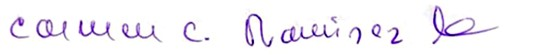 Carmen C. Ramirez